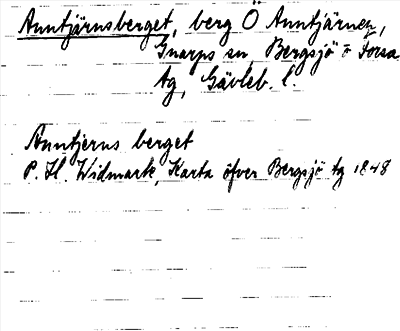 Anntjärnsberget, berg Ö Anntjärnen,
Gnarps sn, Bergsjö o Forsa
tg, Gävleb. l.
Anntjerns berget
P. H. Widmark, Karta öfver Bergsjö tg 1848